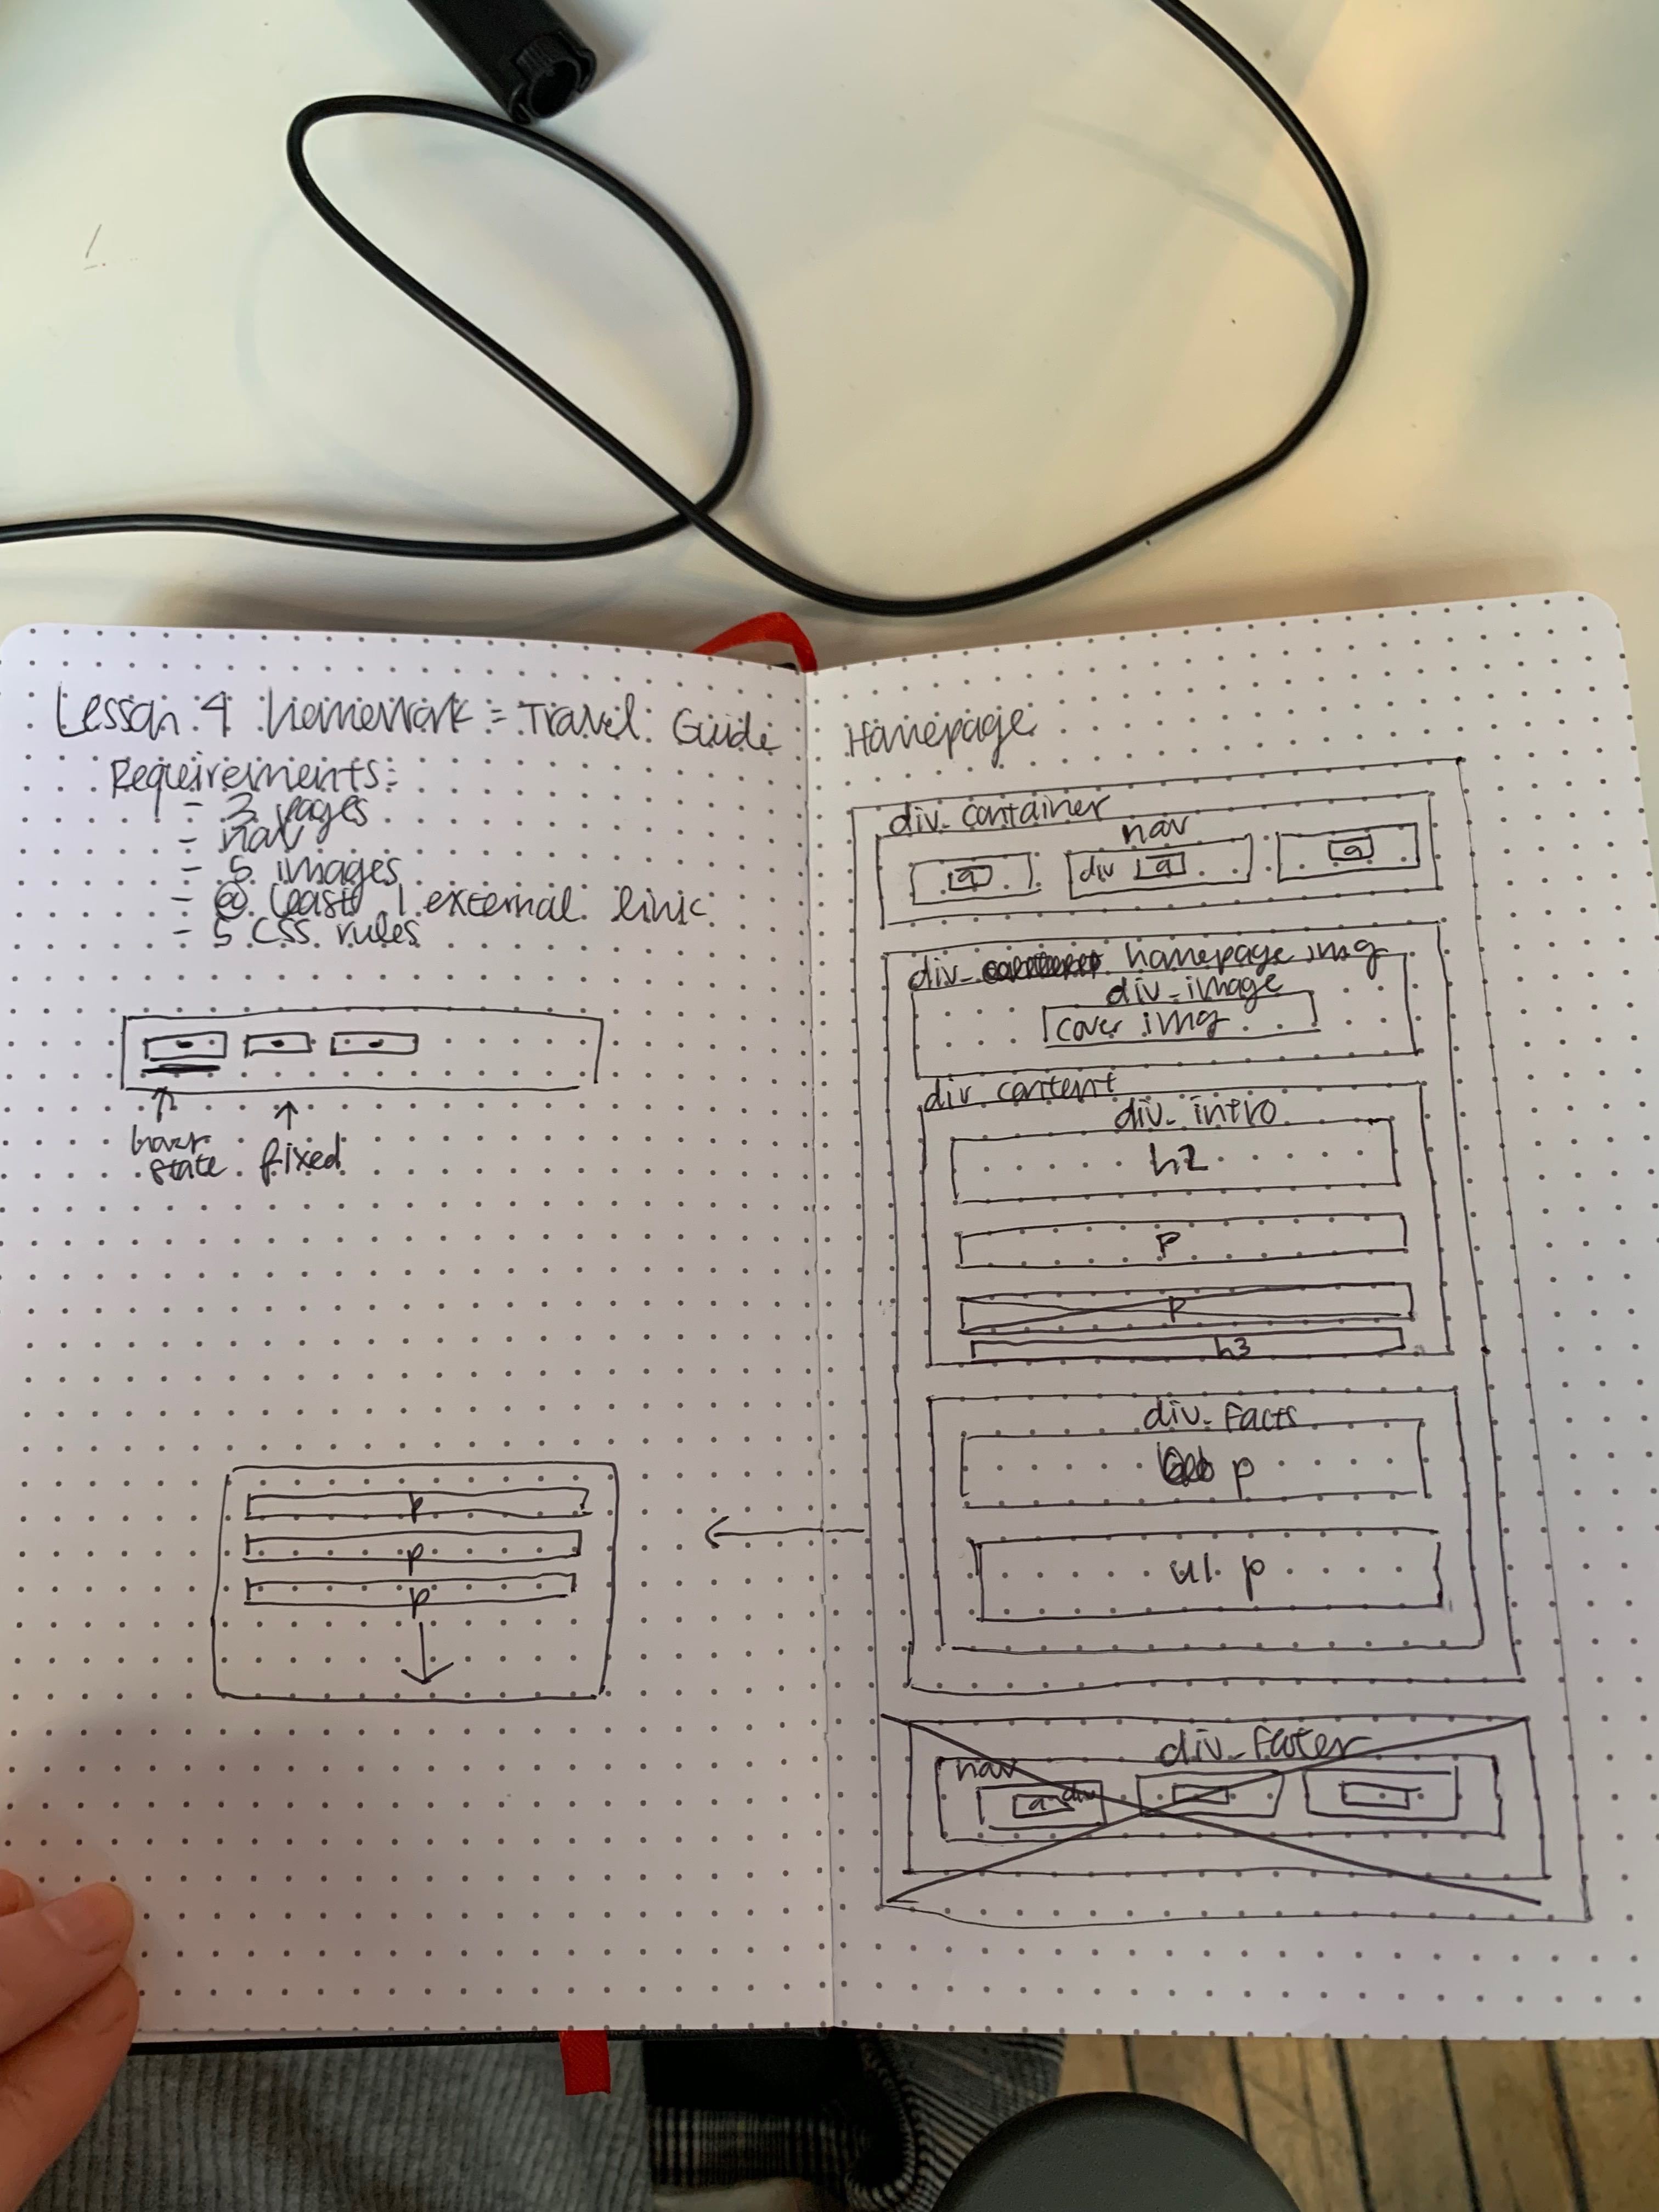 Lesson 4 homework = Travel Guide
Requirements:
- 3 pages
- nav
- 5 images
- @ least 1 external link
- 5 CSS rules
hover state
fixed
p
p
p
Homepage
div. container
nav
a
div a
a
div. homepage img
div. image
cover img
div content
div. intro
h2
p
p
h3
div. Facts
p
ul. p
div. footer
nav
a div